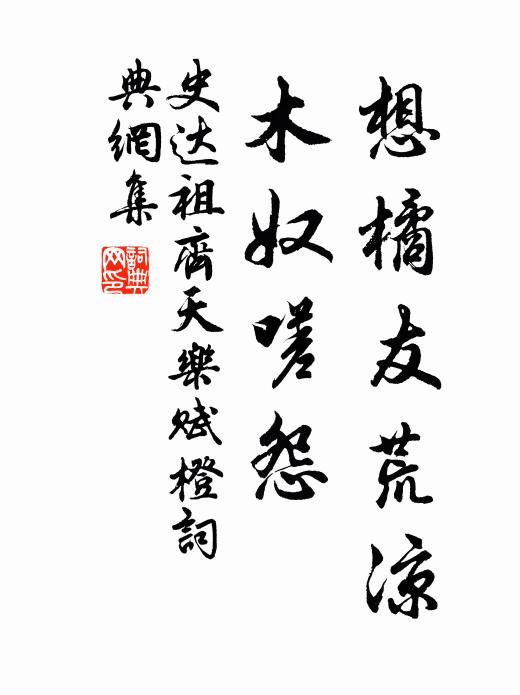 想橘友荒凉
木奴嗟怨
史达祖齊天樂賦橙詞
典網集
詞典网印